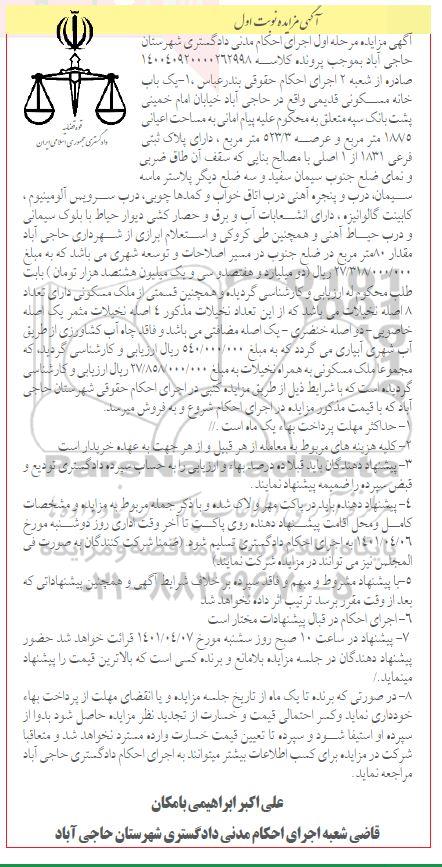 آگهی مزایده نوبت اول
آگهی مزایده مرحله اول اجرای احکام مدنی دادگستری شهرستان
حاجی آباد بموجب پرونده کلاسه ۱۴۰۰۴۰۹۲۰۰۰۰۲۶۲۹۹۸
صادره از شعبه ۲ اجرای احکام حقوقی بندرعباس ۱-یک باب
خانه مسکونی قدیمی واقع در حاجی آباد خیابان امام خمینی
پشت بانک سپه متعلق به محکوم علیه پیام امانی به مساحت اعیانی
۱۸۸/۵ متر مربع و عرصه ۵۲۳/۳ متر مربع ، دارای پلاک ثبتی
فرعی ۱۸۳۱ از ۱ اصلی با مصالح بنایی که سقف آن طاق ضربی
و نمای ضلع جنوب سیمان سفید و سه ضلع دیگر پلاستر ماسه
سیمان، درب و پنجره آهنی درب اتاق خواب و کمدها چوبی، درب سرویس آلومینیوم ،
کابینت گالوانیزه ، دارای انشعابات آب و برق و حصار کشی دیوار حیاط با بلوک سیمانی
و درب حیاط آهنی و همچنین طی کروکی و استعلام ابرازی از شهرداری حاجی آباد
مقدار ۸۰متر مربع در ضلع جنوب در مسیر اصلاحات و توسعه شهری می باشد که به مبلغ
۲۷/۳۱۸/۰۰۰/۰۰۰ ریال (دو میلیارد و هفتصدو سی و یک میلیون هشتصد هزار تومان ) بابت
طلب محکوم له ارزیابی و کارشناسی گردیده و همچنین قسمتی از ملک مسکونی دارای تعداد
۸ اصله نخیلات می باشد که از این تعداد نخیلات مذکور ۴ اصله نخیلات مثمر یک اصله
خاصویی - دو اصله خنضری - یک اصله مضافتی می باشد و فاقد چاه آب کشاورزی از طریق
آب شهری آبیاری می گردد که به مبلغ ۵۴۰/۰۰۰/۰۰۰ ریال ارزیابی و کارشناسی گردید، که
مجموعا ملک مسکونی به همراه نخیلات به مبلغ ۲۷/۸۵۸/۰۰۰/۰۰۰ ریال ارزیابی و کارشناسی
گردیده است که با شرایط ذیل از طریق مزایده کتبی در اجرای احکام حقوقی شهرستان حاجی
آباد که با قیمت مذکور مزایده در اجرای احکام شروع و به فروش میرسد.
۱- حداکثر مهلت پرداخت بهاء یک ماه است ./
۲-کلیه هزینه های مربوط به معامله از هر قبیل و از هر جهت به عهده خریدار است
۳-پیشنهاد دهندگان باید قبلا ده درصد بهاء و ارزیابی را به حساب سپرده دادگستری تودیع و
قبض سپرده را ضمیمه پیشنهاد نمایند.
۴- پیشنهاد دهنده باید در پاکت مهر و لاک شده و با ذکر جمله مربوط به مزایده و مشخصات
کامل و محل اقامت پیشنهاد دهنده روی پاکت تا آخر وقت اداری روز دوشنبه مورخ
۱۴۰۱/۰۴/۰۶ به اجرای احکام دادگستری تسلیم شود .(ضمنا شرکت کنندگان به صورت فی
المجلس نیز می توانند در مزایده شرکت نمایند)
۵-با پیشنهاد مشروط و مبهم و فاقد سپرده بر خلاف شرایط آگهی و همچنین پیشنهاداتی که
بعد از وقت مقرر برسد ترتیب اثر داده نخواهد شد
۶-اجرای احکام در قبال پیشنهادات مختار است
۷- پیشنهاد در ساعت ۱۰ صبح روز سشنبه مورخ ۱۴۰۱/۰۴/۰۷ قرائت خواهد شد حضور
پیشنهاد دهندگان در جلسه مزایده بلامانع و برنده کسی است که بالاترین قیمت را پیشنهاد
مینماید./
۸- در صورتی که برنده تا یک ماه از تاریخ جلسه مزایده و یا انقضای مهلت از پرداخت بهاء
خودداری نماید وکسر احتمالی قیمت و خسارت از تجدید نظر مزایده حاصل شود بدوا از
سپرده او استیفا شود و سپرده تا تعیین قیمت خسارت وارده مسترد نخواهد شد و متعاقبا
شرکت در مزایده برای کسب اطلاعات بیشتر میتوانند به اجرای احکام دادگستری حاجی آباد
مراجعه نماید.
علی اکبر ابراهیمی بامکان
قاضی شعبه اجرای احکام مدنی دادگستری شهرستان حاجی آباد
قوه قضاییه
دادگستری جمهوری اسلامی ایران